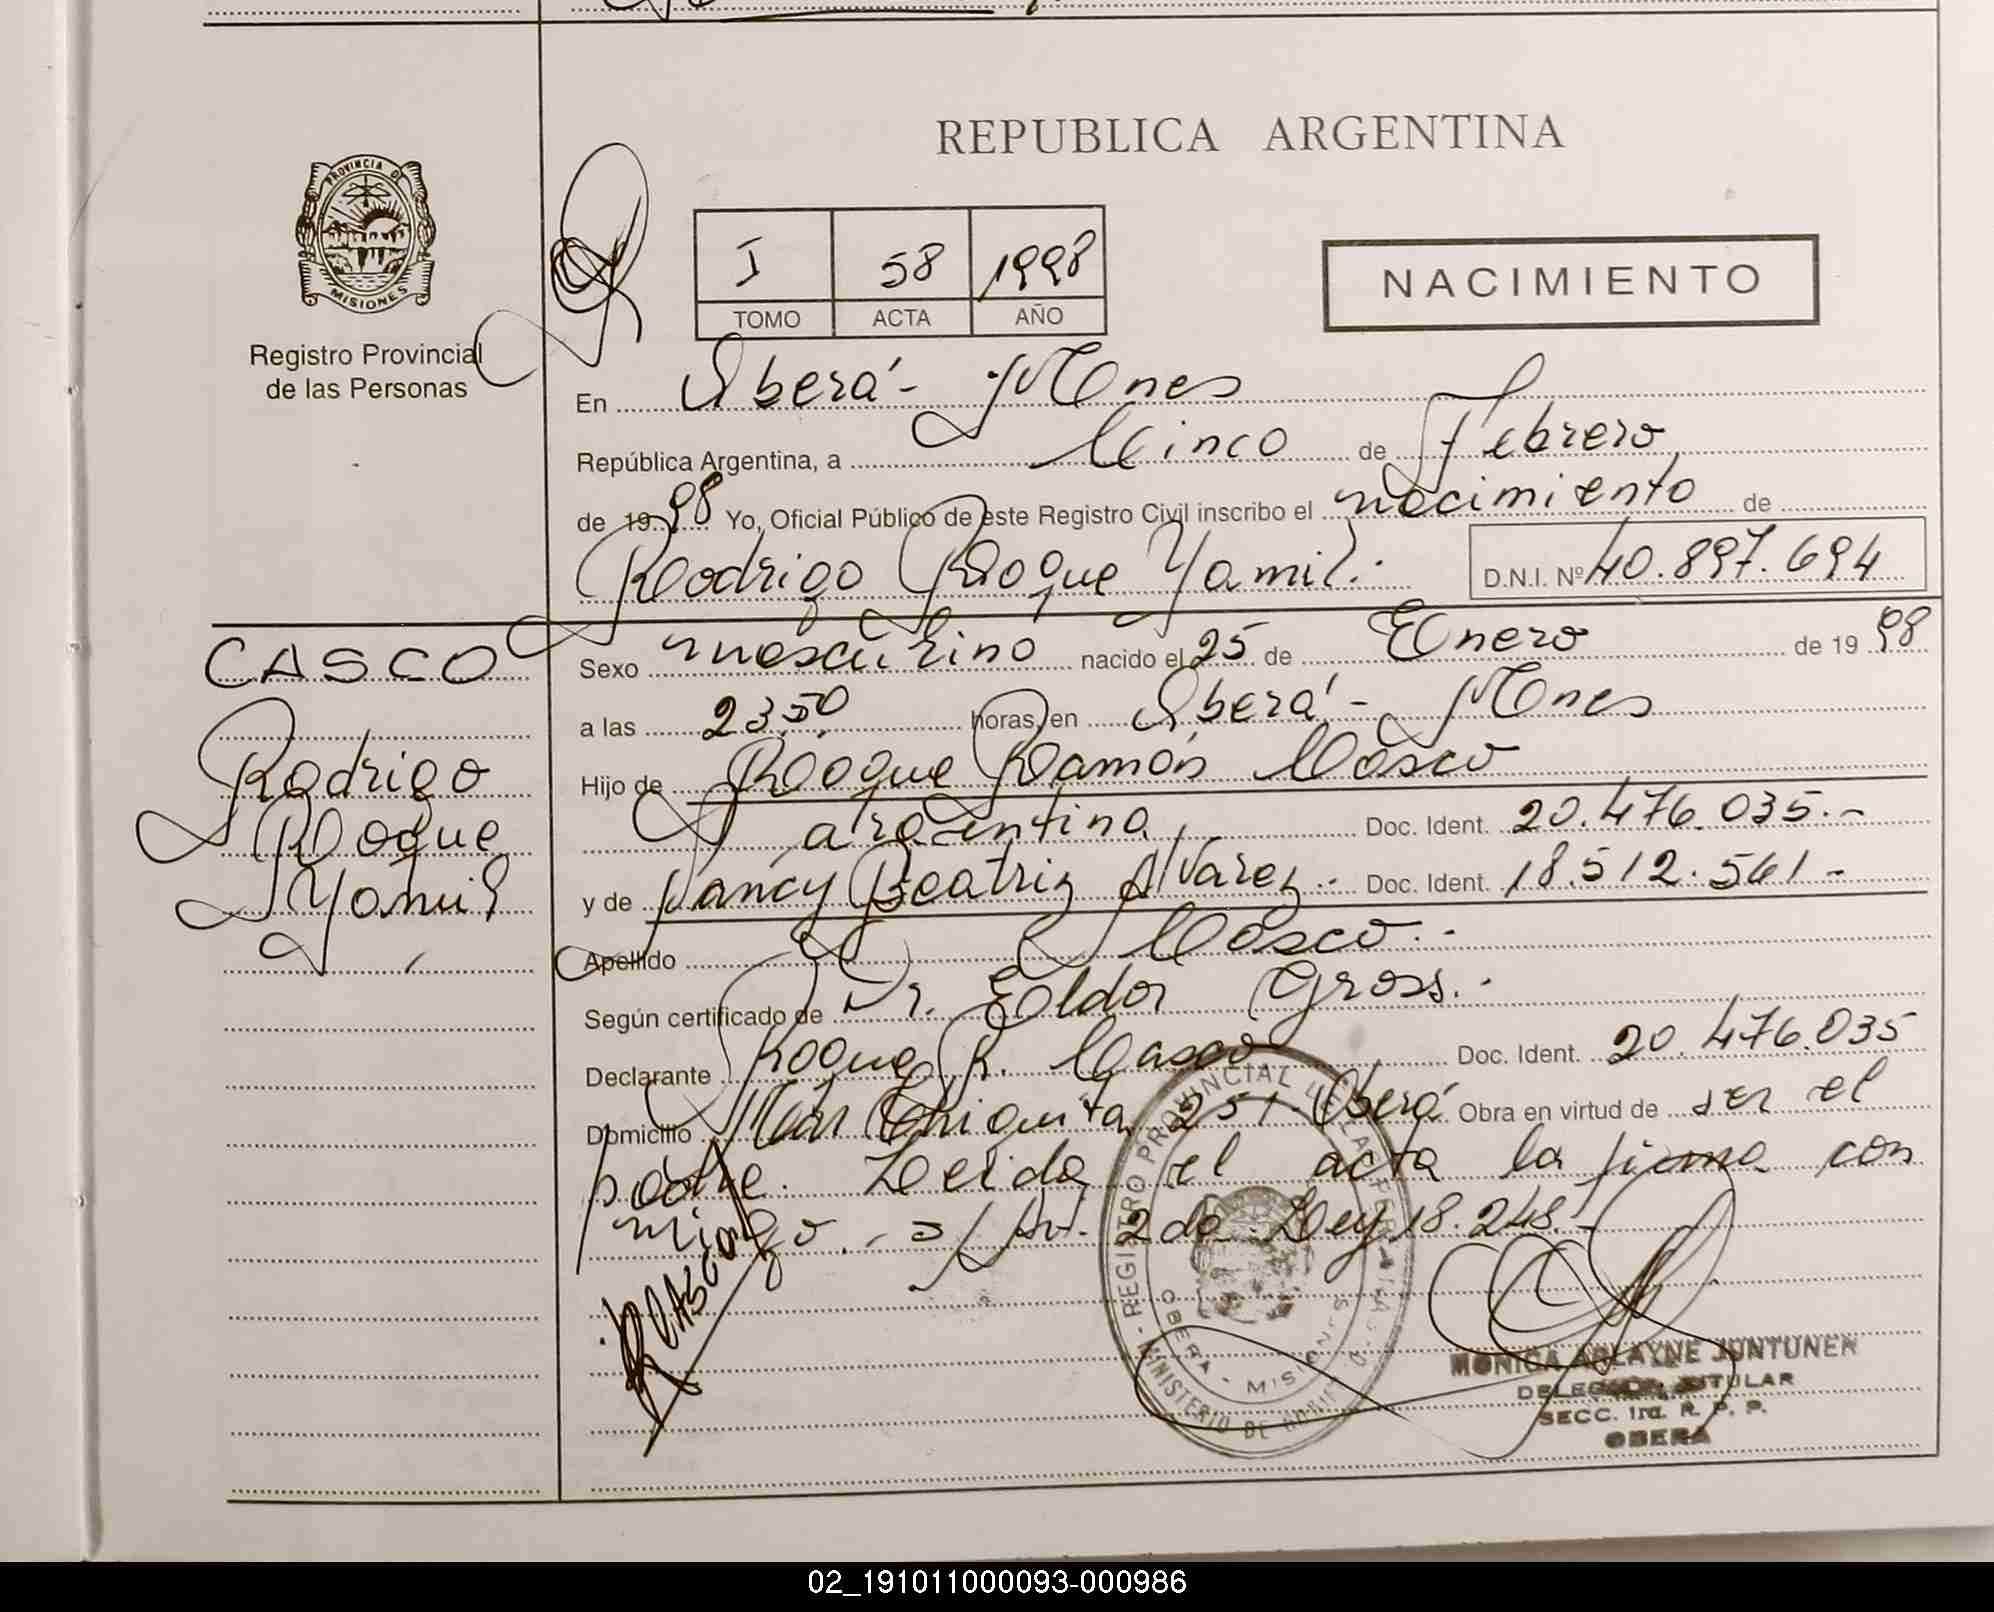 PROVINCIA DE
MISIONES
Registro Provincial
de las Personas
REPUBLICA ARGENTINA
I 58 1998
TOMO ACTA AÑO
NACIMIENTO
En Oberá - Mnes
República Argentina, a Cinco de Febrero
de 1998 Yo, Oficial Público de este Registro Civil inscribo el nacimiento de
Rodrigo Roque Yamil.- D.N.I. Nº 40.897.694
CASCO
Rodrigo
Roque
Yamil
Sexo masculino nacido el 25 de Enero de 1998
a las 23.50 horas, en Oberá - Mnes
Hijo de Roque Ramón Casco
argentina, Doc. Ident. 20.476.035.-
y de Nancy Beatriz Alvarez.- Doc. Ident. 18.512.561-
Apellido Casco.-
Según certificado de Dr. Eldor Gross.-
Declarante Roque R. Casco Doc. Ident. 20.476.035
Domicilio Mar Chiquita 251 - Oberá Obra en virtud de ser el
padre. Leida el acta la firma con
migo. - s/ Art. 2do Ley 18.248.-
R CASCO
REGISTRO PROVINCIAL DE LAS PERSONAS
MINISTERIO DE
OBERA - MISIONES
MONICA JUNTUNEN
DELEGADA TITULAR
SECC. 1ra. R. P. P.
OBERA
02_191011000093-000986